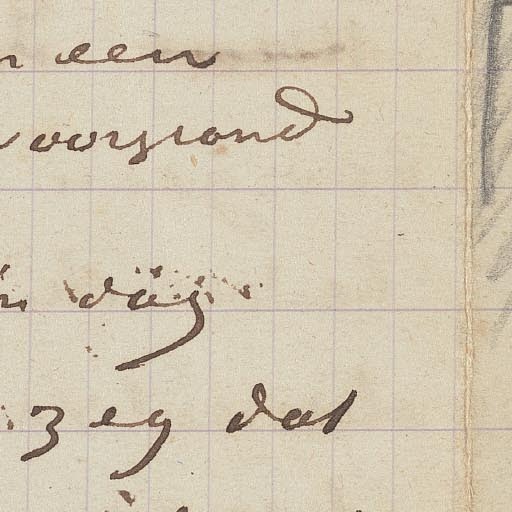 een
voorgrond
dag
zeg dat